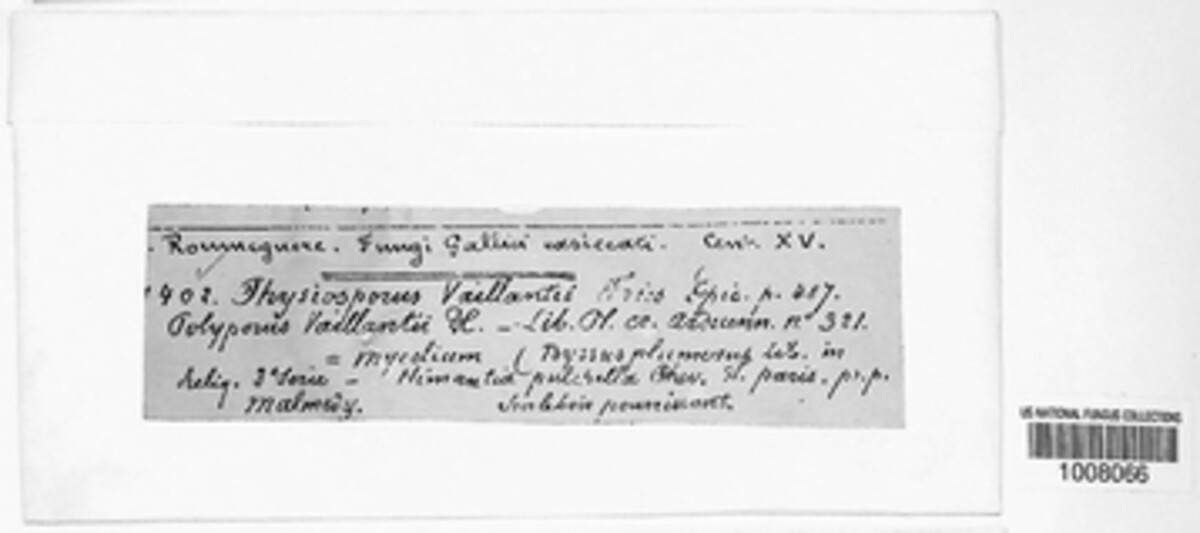 Roumeguere. Fungi Gallici exsiccati. Cent. XV.
1402. Physisporus Vaillantii Fries Epic. p. 487.
Polyporus Vaillantii Fl. — Lib. Pl. cr. Arduenn. n° 321.
= Mycelium ( Byssus plumosus Lib. in
Reliq. 3e Serie — Himantia pulchella Chev. Fl. paris. pr.p.
Malmedy. Sur le bois pourrissant.
US NATIONAL FUNGUS COLLECTIONS
1008066